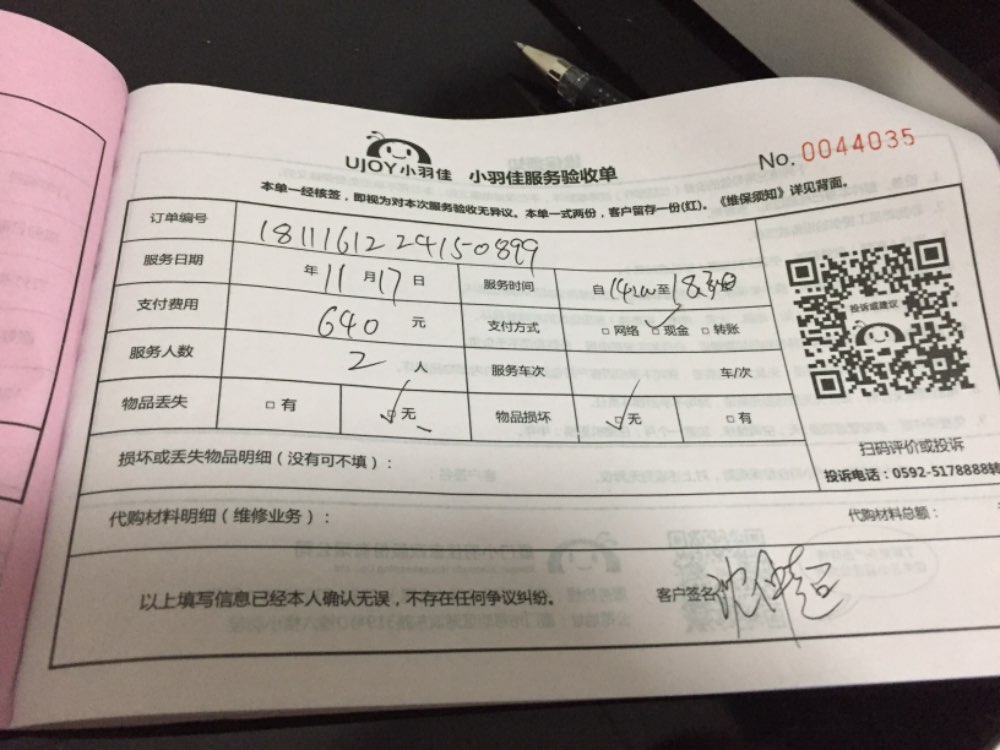 UJOY小羽佳 小羽佳服务验收单
No. 0044035
本单一经核签，即视为对本次服务验收无异议。本单一式两份，客户留存一份(红)。《维保须知》详见背面。
订单编号 1811161224150899
服务日期 年11月17日 服务时间 自 至
支付费用 640 元 支付方式 □网络 □现金 □转账
服务人数 2 人 服务车次 车/次
物品丢失 □有 □无 物品损坏 □无 □有
投诉或建议
扫码评价或投诉
投诉电话：0592-5178888转
损坏或丢失物品明细（没有可不填）：
代购材料明细（维修业务）：
代购材料总额：
以上填写信息已经本人确认无误，不存在任何争议纠纷。 客户签名